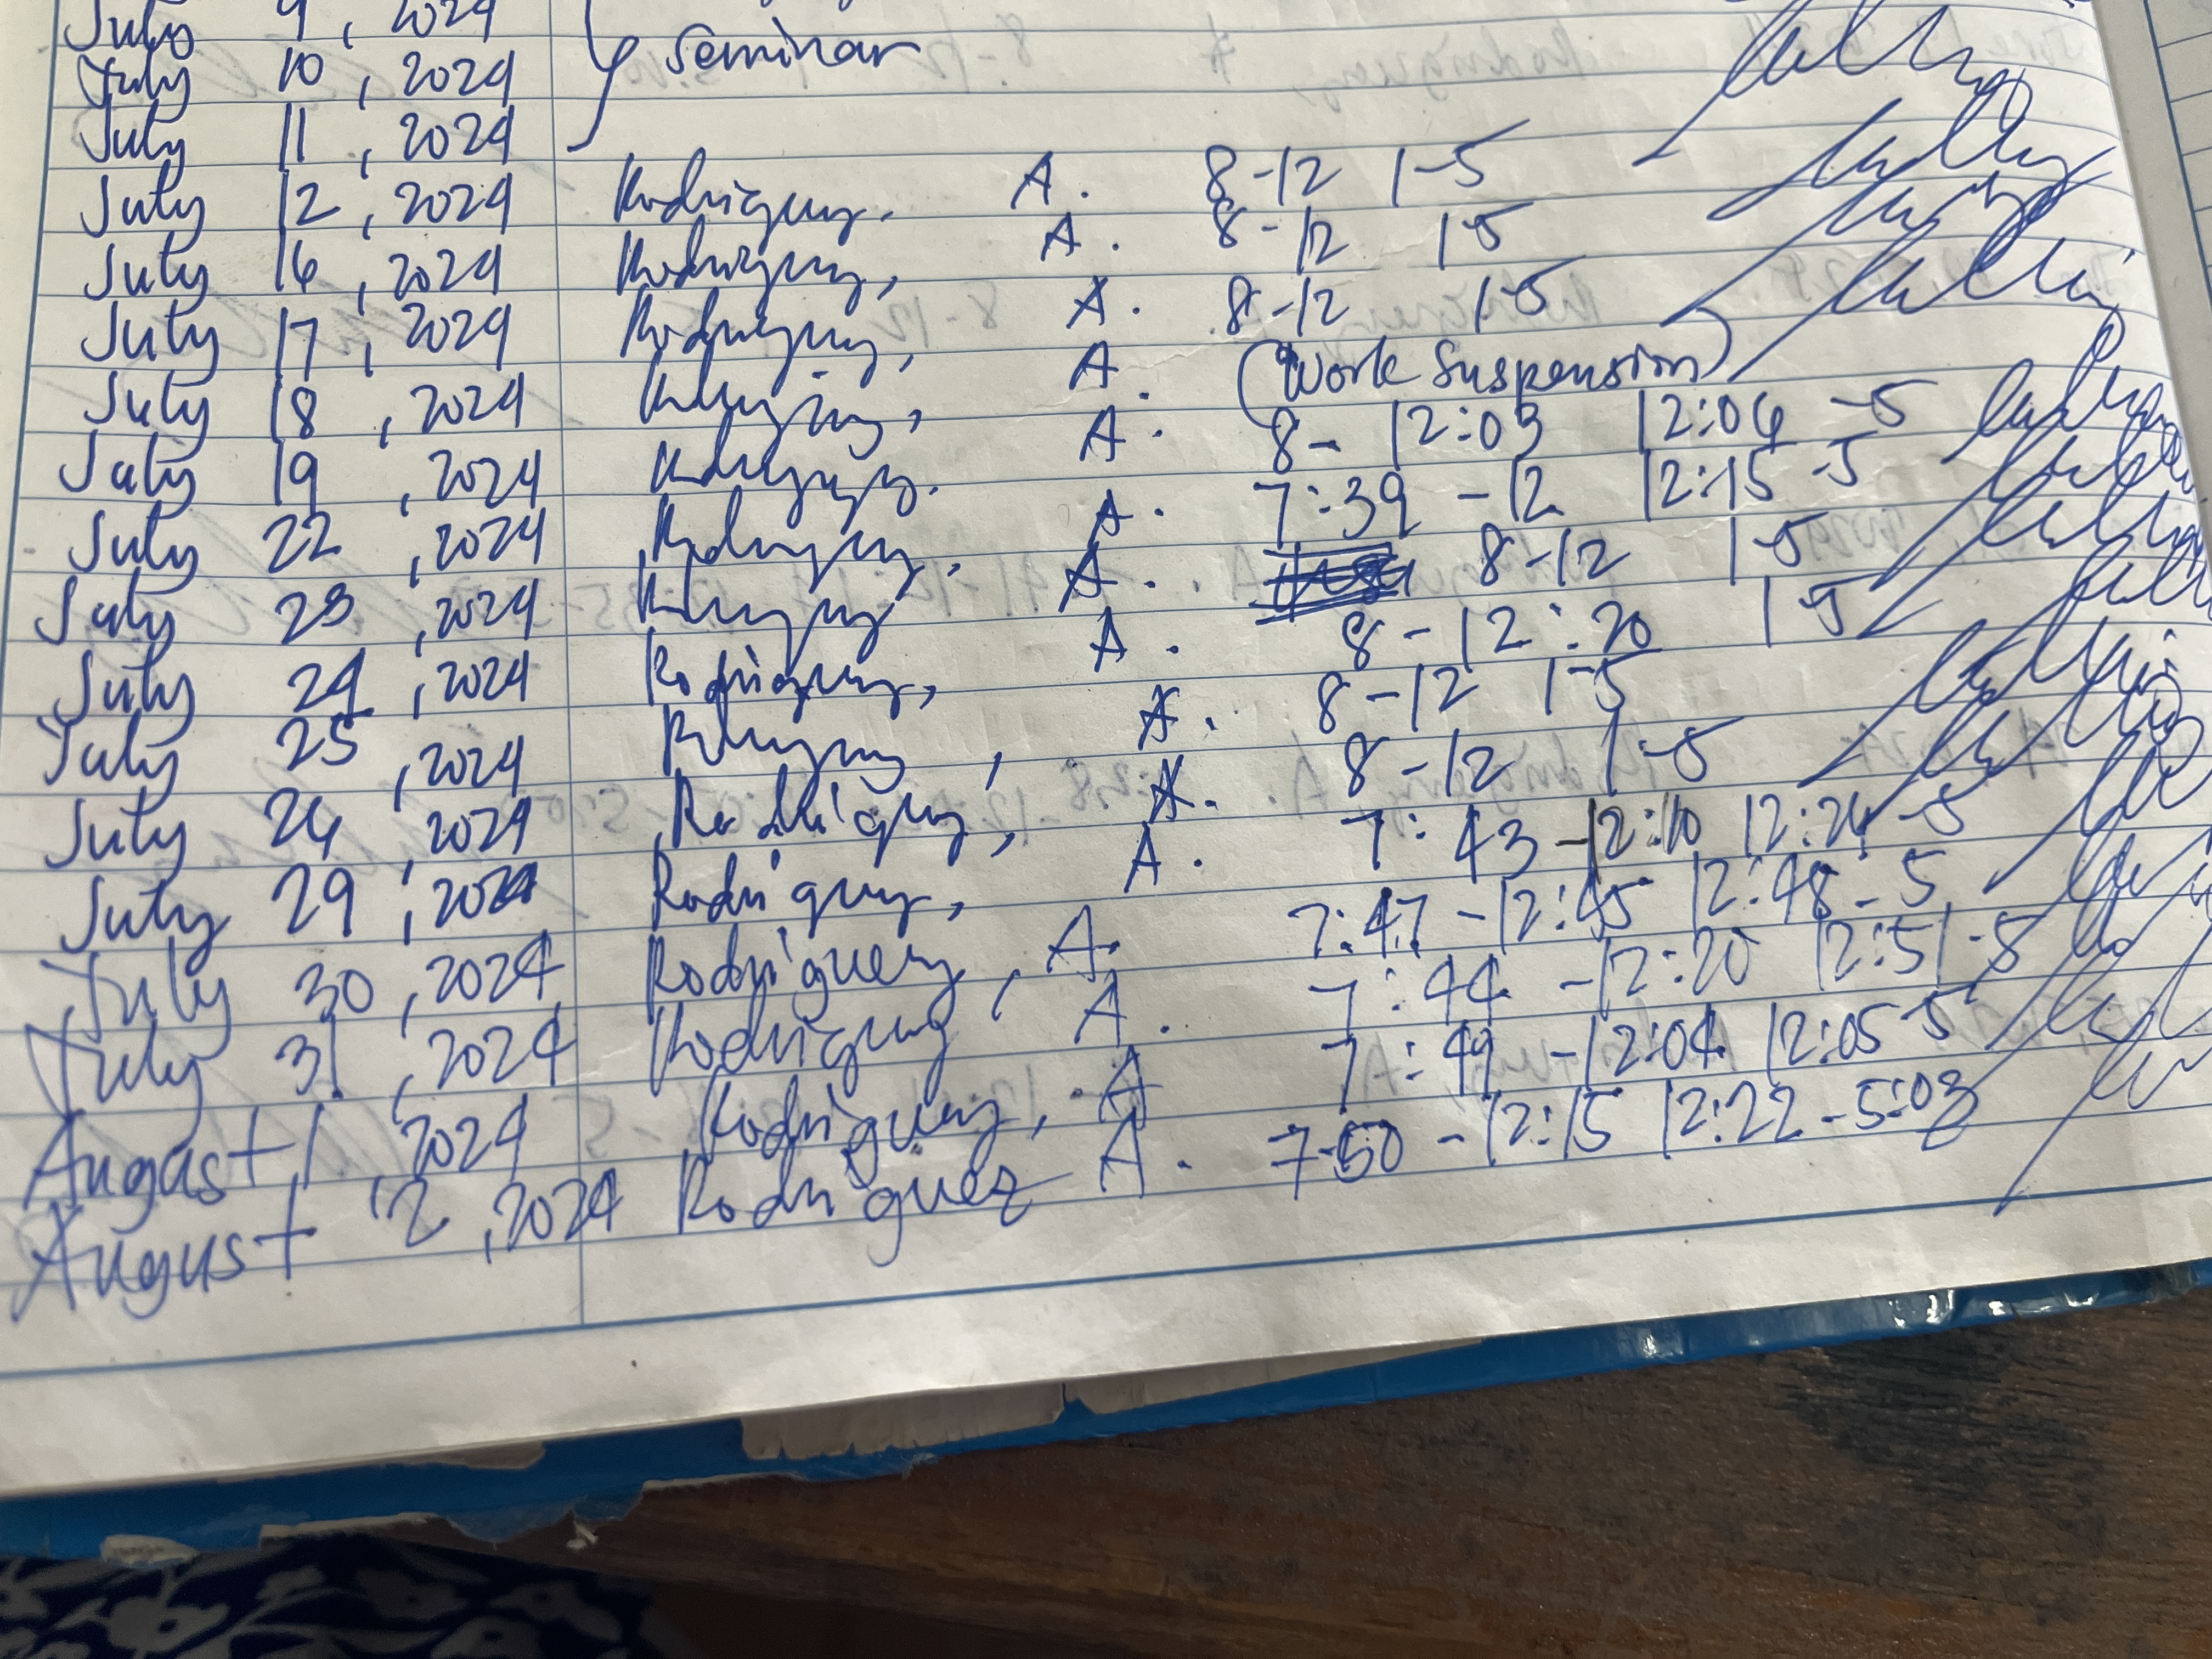 July 9, 2024
July 10, 2024 Seminar
July 11, 2024
July 12, 2024 Rodriguez, A. 8-12 1-5
July 16, 2024 Rodriguez, A. 8-12 1-5
July 17, 2024 Rodriguez, A. 8-12 1-5
July 18, 2024 Rodriguez, A. (Work Suspension)
July 19, 2024 Rodriguez, A. 8- 12:03 12:06 -5
July 22, 2024 Rodriguez, A. 7:39 -12 12:15 -5
July 23, 2024 Rodriguez A. 8-12 1-5
July 24, 2024 Rodriguez, A. 8-12:20 1-5
July 25, 2024 Rodriguez, A. 8-12 1-5
July 26, 2024 Rodriguez, A. 8-12 1-5
July 29, 2024 Rodriguez, A. 7:43 -12:10 12:26 -5
July 30, 2024 Rodriguez, A. 7:47 -12:45 12:48 -5
July 31, 2024 Rodriguez A. 7:44 -12:20 12:51 -5
August 1, 2024 Rodriguez, A 7:49 -12:04 12:05 5
August 2, 2024 Rodriguez A. 7:50 -12:15 12:22 -5:03